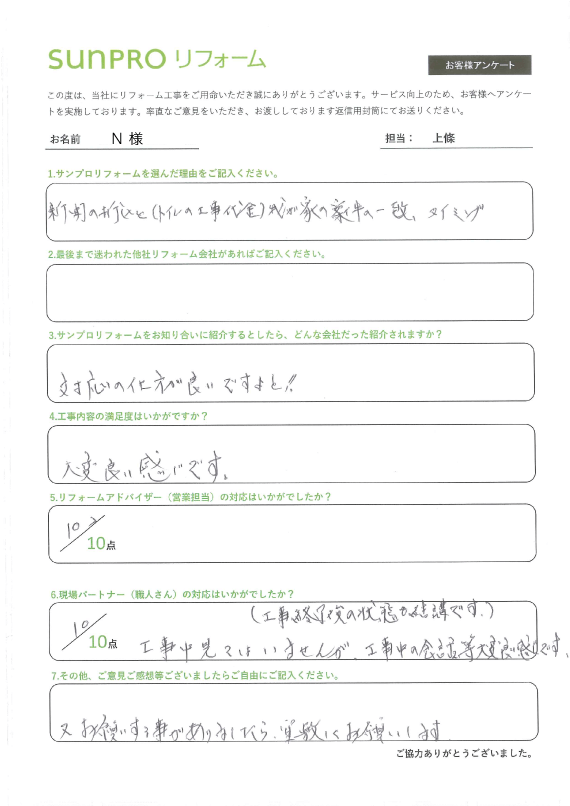 SUNPRO リフォーム
お客様アンケート
この度は、当社にリフォーム工事をご用命いただき誠にありがとうございます。サービス向上のため、お客様へアンケー
トを実施しております。率直なご意見をいただき、お渡ししております返信用封筒にてお送りください。
お名前 N 様 担当： 上條
1.サンプロリフォームを選んだ理由をご記入ください。
新聞の折込と(トイレの工事代金)我が家の築年の一致、タイミング
2.最後まで迷われた他社リフォーム会社があればご記入ください。
3.サンプロリフォームをお知り合いに紹介するとしたら、どんな会社だった紹介されますか？
対応の仕方が良いですよと!!
4.工事内容の満足度はいかがですか？
大変良い感じです。
5.リフォームアドバイザー（営業担当）の対応はいかがでしたか？
10/10点
6.現場パートナー（職人さん）の対応はいかがでしたか？
(工事終了後の状態も結構です。)
10/10点 工事中見てはいませんが、工事中の会話等大変良い感じです。
7.その他、ご意見ご感想等ございましたらご自由にご記入ください。
又お願いする事がありましたら、宜敷くお願いします
ご協力ありがとうございました。